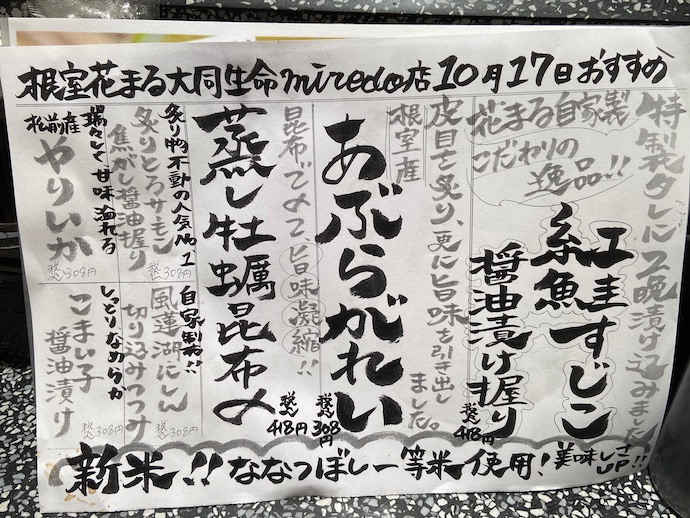 根室花まる大同生命miredo店10月17日おすすめ
特製タレに2晩漬け込みました
花まる自家製
こだわりの
逸品!!
紅鮭すじこ
醤油漬け握り
税込418円
皮目を炙り、更に旨味を引き出しました。
根室産
あぶらがれい
税込308円
昆布で〆て旨味凝縮!!
蒸し牡蠣昆布〆
税込418円
炙り物不動の人気No.1
炙りとろサーモン
焦がし醤油握り
税込308円
瑞々しく甘味溢れる
松前産
やりいか
税込308円
自家製!!
風蓮湖にしん
切り込みつつみ
税込308円
しっとりなめらか
こまい子
醤油漬け
税込308円
新米!!ななつぼし一等米使用!美味しさUP!!